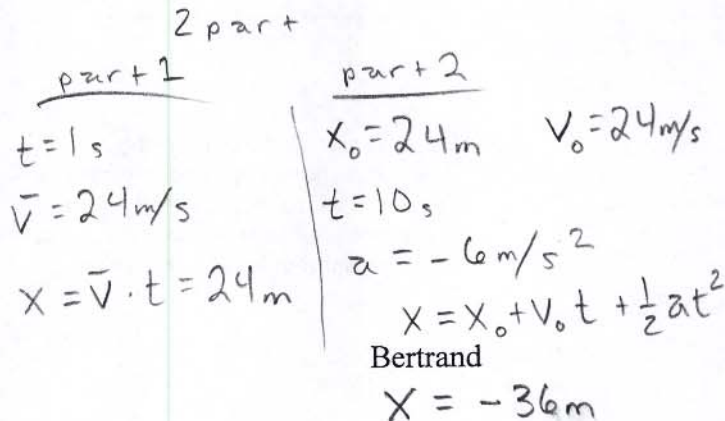 2 part
part 1
t = 1 s
v̄ = 24 m/s
x = v̄ · t = 24 m
part 2
x₀ = 24 m   v₀ = 24 m/s
t = 10 s
a = - 6 m/s²
x = x₀ + v₀ t + ½ at²
Bertrand
x = - 36 m